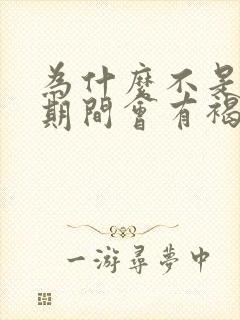 为什麼不是
期间會有褐
一游尋夢中